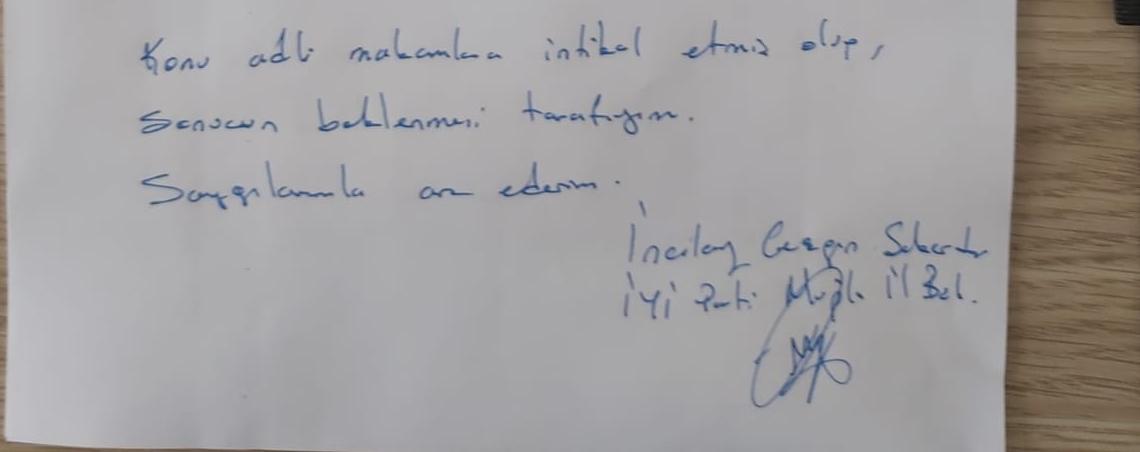 Konu adli makamlara intikal etmiş olup,
Sonucun beklenmesi tarafıyım.
Saygılarımla arz ederim.
İncilay Gezgin
İYİ Parti Muğla İl Bşk.